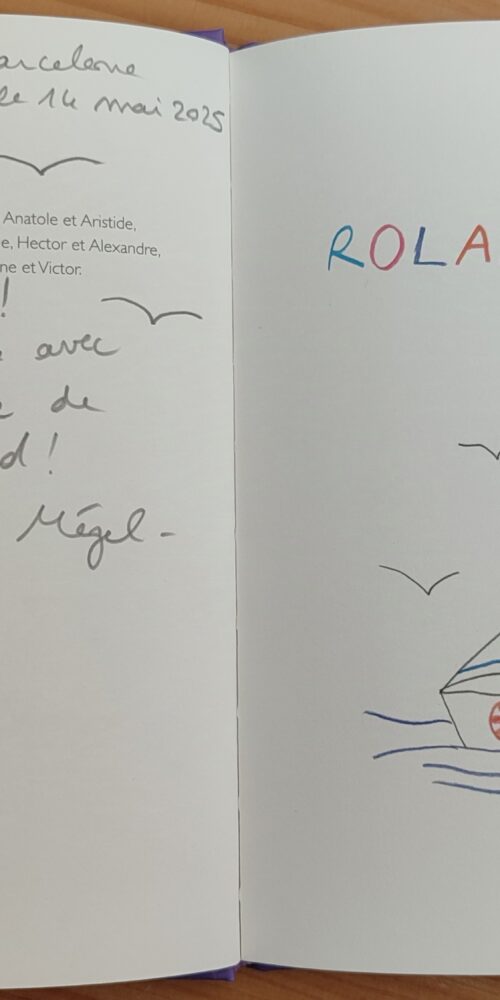 arcelone
le 14 mai 2025
Anatole et Aristide,
e, Hector et Alexandre,
ne et Victor.
!
avec
de
d !
Mégel -
ROLA